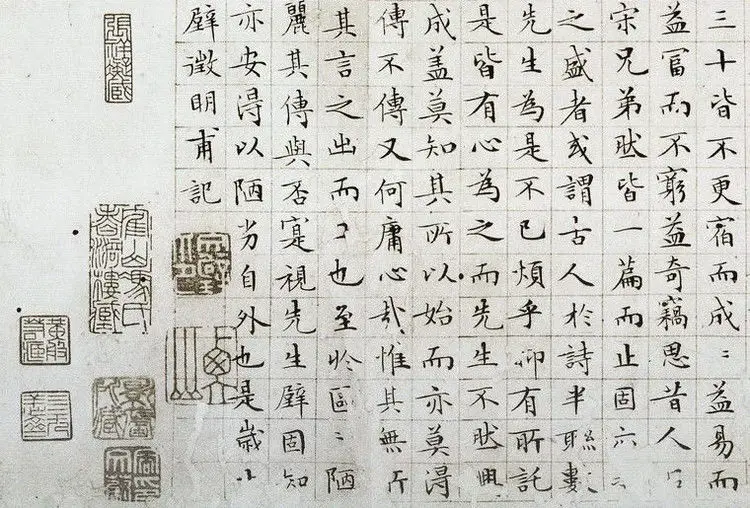 三十皆不更宿而成〻益易而
益富而不窮益奇竊思昔人
宋兄弟然皆一篇而止固
之盛者或謂古人於詩半聯數
先生為是不已煩乎抑有所託
是皆有心為之而先生不然興
成盖莫知其所以始而亦莫得
傳不傳又何庸心哉惟其無所
其言之出而〻也至於區〻陋
麗其傳與否寔視先生壁固知
亦安得以陋劣自外也是歲
壁徵明甫記
張祥凝藏